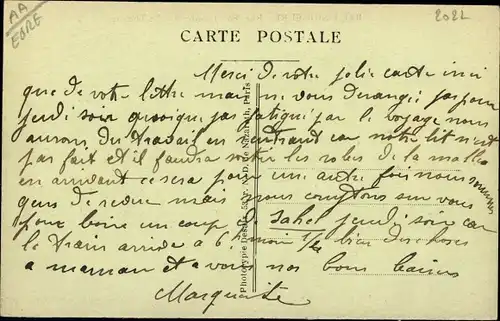 AA
EORE
2022
CARTE POSTALE
Merci de votre jolie carte
que de votre lettre ne vous dérangez pas pour
jeudi soir quoique pas fatigué par le voyage nous
aurons du travail en rentrant car notre lit n'est
pas fait et il faudra sortir les robes de la malle
en arrivant ce sera pour une autre fois nous sommes
gens de revue mais nous comptons sur vous
pour boire un coup de jeudi soir car
le train arrive à 6h moins 1/4 bien des choses
a maman et a vous nos bons baisers
Marguerite
Phototype Desaix, N.-D. de Nazareth, Paris